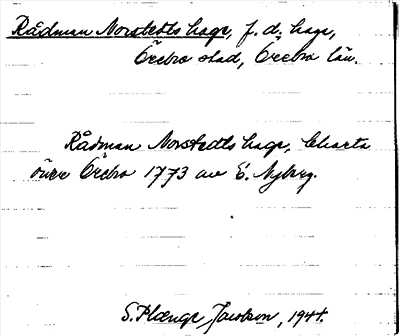 Rådman Norstedts hage, f. d. hage,
Örebro stad, Örebro län.
Rådman Norstedts hage, Charta
över Örebro 1773 av E. Nyberg.
S. Plænge Jacobson, 1944.